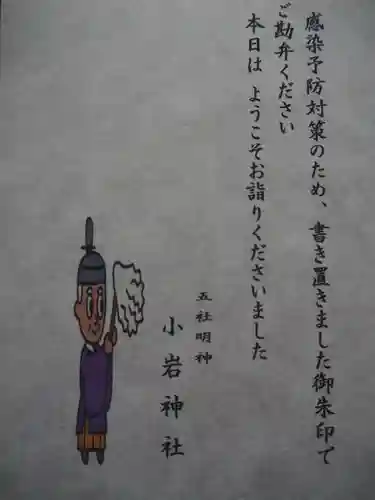 感染予防対策のため、書き置きました御朱印で
ご勘弁ください
本日は ようこそお詣りくださいました
五社明神
小岩神社